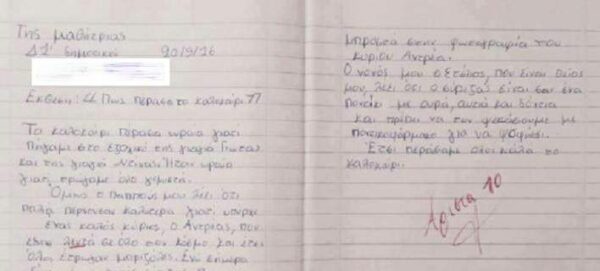 Της μαθήτριας
Δ1' δημοτικό 20/9/16
Έκθεση: "Πως πέρασα το καλοκαίρι"
Το καλοκαίρι πέρασα ωραία γιατί
Πήγαμε στο εξοχικό της γιαγιά Γιώτας
και της γιαγιά Ντίνας. Ήταν ωραία
γιατί τρώγαμε όλο γεμιστά.
Όμως ο παππούς μου λέει ότι
παλιά περνούσαν καλύτερα γιατί υπήρχε
ένας καλός κύριος, ο Αντρέας, που
έδινε λευτά σε όλο τον κόσμο και έτσι
όλοι έτρωγαν μπριζόλες. Ενώ σήμερα
μπροστά στην φωτογραφία του
κυρίου Αντρέα.
Ο νονός μου ο Στάθης, που είναι θείος
μου, λέει ότι ο σύριζας είναι σαν ένα
ποντίκι με ουρά, αυτιά και δόντια
και πρέπει να τον ψεκάσουμε με
ποντικοφάρμακο για να ψοφήσει.
Έτσι περάσαμε όλοι καλά το
καλοκαίρι.
Άριστα 10